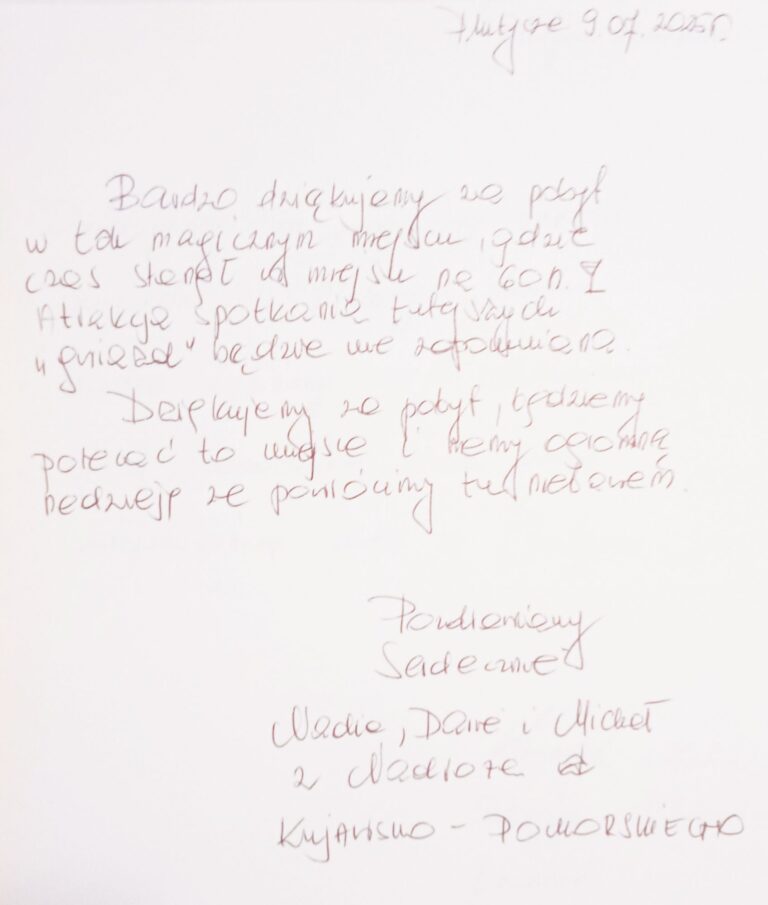 9.07.2025r.
Bardzo dziękujemy za pobyt
w tak magicznym miejscu, gdzie
czas stanął w miejscu na 60n.
Atrakcja spotkania tutejszych
"gniazd" będzie nie zapomniana.
Dziękujemy za pobyt, będziemy
polecać to miejsce i mamy ogromną
nadzieję że powrócimy tu niebawem.
Pozdrawiamy
Serdecznie
Nadia, Daria i Michał
z
KUJAWSKO - POMORSKIEGO